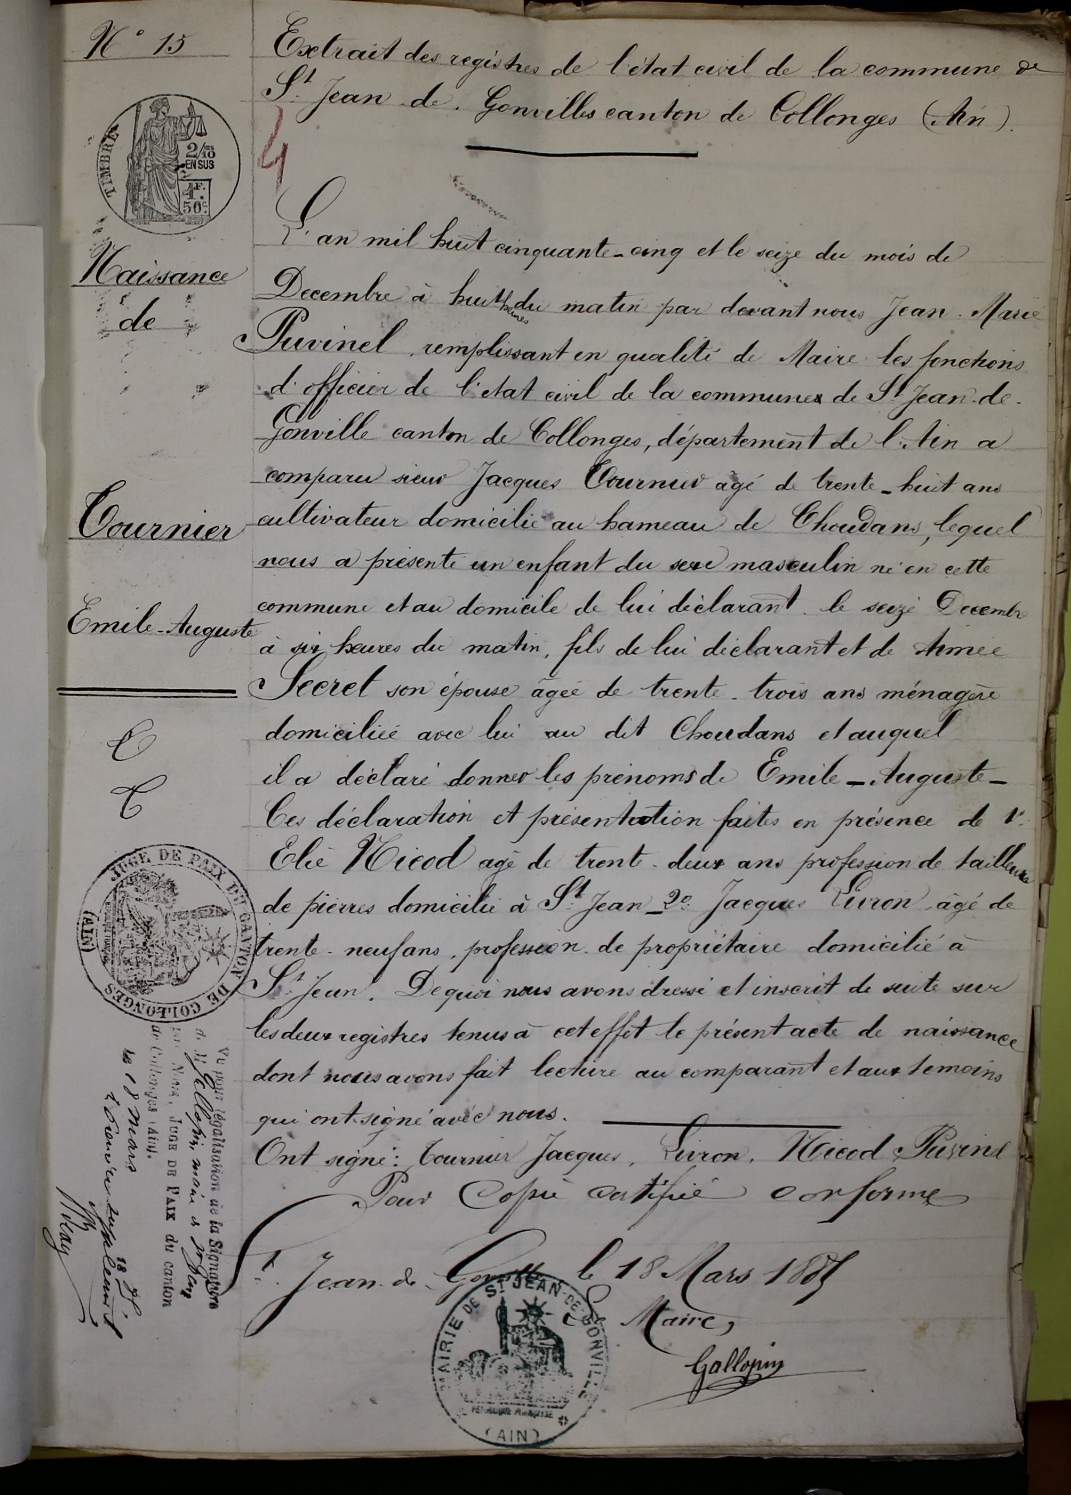 N° 15
Extrait des registres de l'état civil de la commune de
St Jean de Gonvilles canton de Collonges (Ain).
4
TIMBRE
2/10 EN SUS
1F. 50c.
Naissance
de
Tournier
Emile-Auguste
L'an mil huit cinquante-cinq et le seize du mois de
Decembre à huit heures du matin par devant nous Jean-Marie
Puvinel remplissant en qualité de Maire les fonctions
d'officier de l'état civil de la commune de St Jean-de-
Gonville canton de Collonges, département de l'Ain a
comparu sieur Jacques Tournier âgé de trente-huit ans
cultivateur domicilié au hameau de Choudans, lequel
nous a présenté un enfant du sexe masculin né en cette
commune et au domicile de lui déclarant le seize Decembre
à six heures du matin, fils de lui déclarant et de Aimée
Secret son épouse âgée de trente-trois ans ménagère
domiciliée avec lui au dit Choudans et auquel
il a déclaré donner les prénoms de Emile-Auguste-
Ces déclaration et présentation faites en présence de 1°
Elie Nicod agé de trente-deux ans profession de tailleur
de pierres domicilié à St Jean-2° Jacques Livron âgé de
trente-neuf ans, profession de propriétaire domicilié à
St Jean. De quoi nous avons dressé et inscrit de suite sur
les deux registres tenus à cet effet le présent acte de naissance
dont nous avons fait lecture au comparant et aux temoins
qui ont signé avec nous.
Ont signé: Tournier Jacques, Livron, Nicod Puvinel
Pour Copie certifiée conforme
St. Jean-de-Gonville le 18 Mars 18
Le Maire,
Gallopin
MAIRIE DE ST JEAN-DE-GONVILLE
(AIN)
JUGE DE PAIX DU CANTON DE COLLONGES
(AIN)
Vu pour légalisation de la Signature
de M Gallopin, maire de St Jean
par Nous, JUGE DE PAIX du canton
de Collonges (Ain).
le 18 Mars